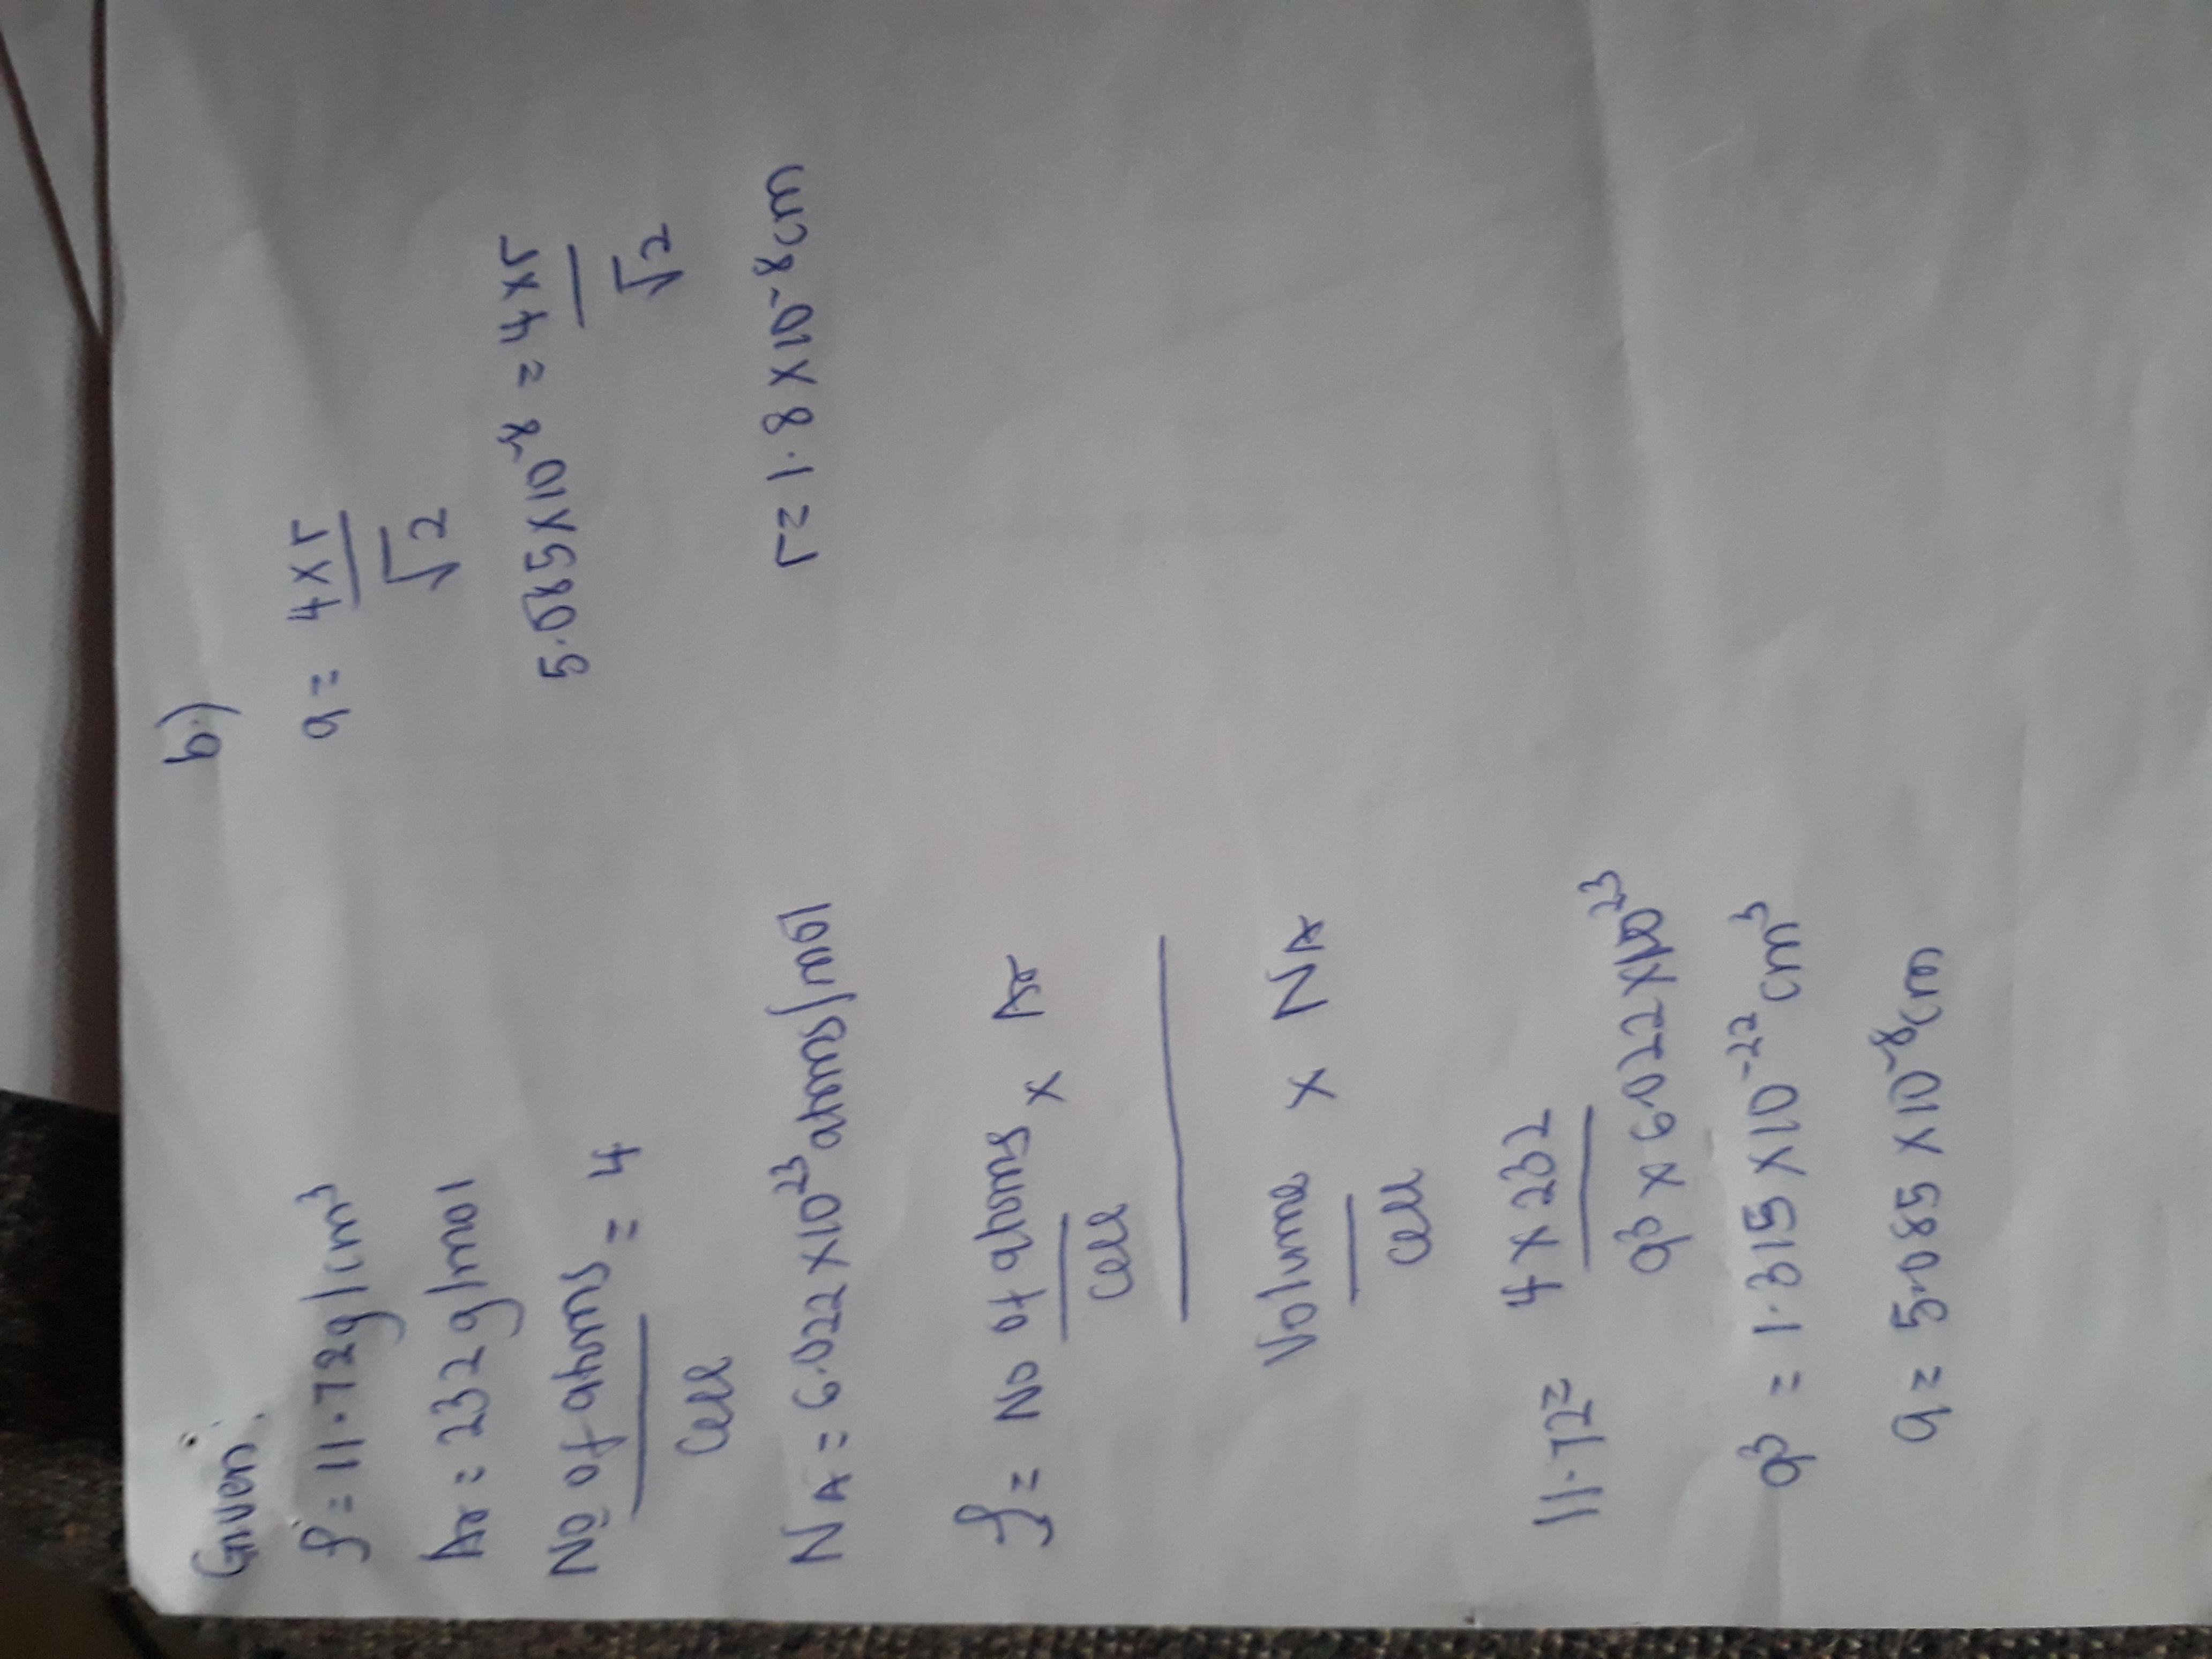 Given:
ρ = 11.72g/cm³
Ar = 232 g/mol
No of atoms = 4
cell
NA = 6.022 x10²³ atoms/mol
ρ = No of atoms x Ar
cell
Volume x NA
cell
11.72 = 4 x 232
a³ x 6.022 x10²³
a³ = 1.315 x10⁻²² cm³
a = 5.085 x10⁻⁸cm
b)
a = 4xr
√2
5.085x10⁻⁸ = 4xr
√2
r = 1.8 x10⁻⁸cm